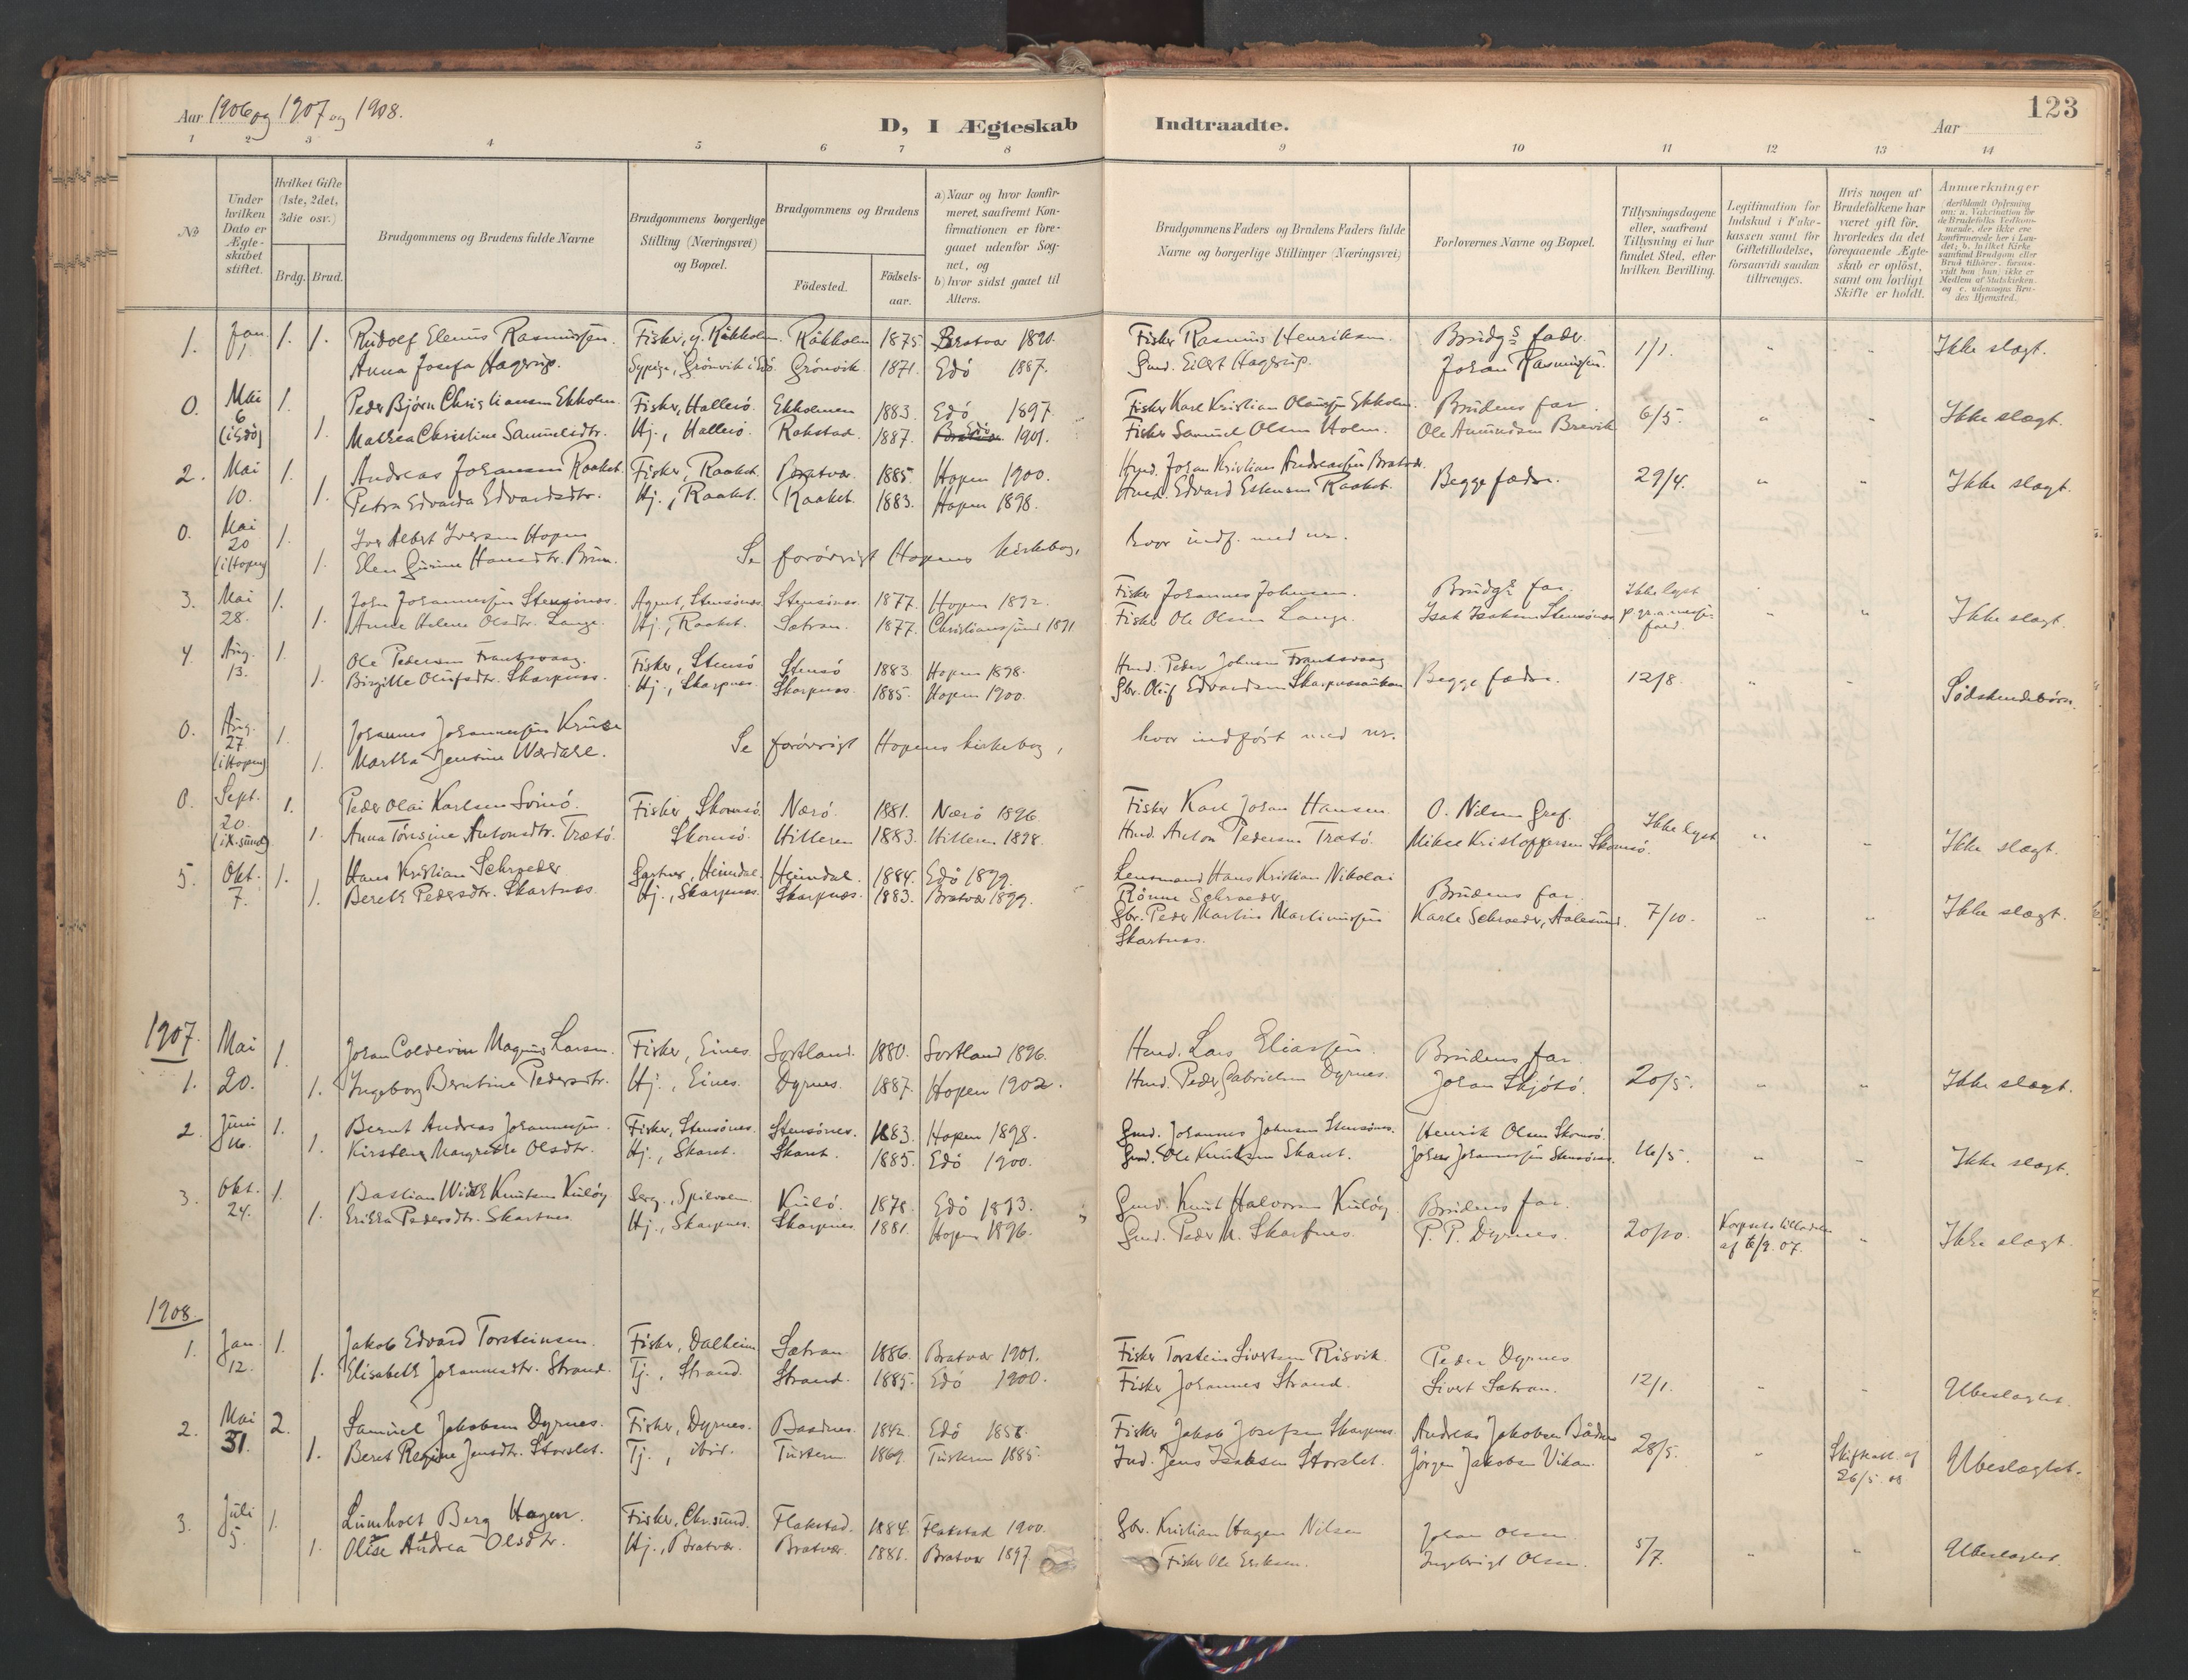 Aar 1906 og 1907 og 1908.
D, I Ægteskab Indtraadte.
Aar
123
1 2 3 4 5 6 7 8 9 10 11 12 13 14
No
Under hvilken Dato er Ægteskabet stiftet.
Hvilket Gifte (1ste, 2det, 3die osv.)
Brdg. Brud.
Brudgommens og Brudens fulde Navne
Brudgommens borgerlige Stilling (Næringsvei) og Bopæl.
Brudgommens og Brudens
Födested.
Födsels-aar.
a) Naar og hvor konfirmeret, saafremt Konfirmationen er foregaaet udenfor Sognet, og
b) hvor sidst gaaet til Alters.
Brudgommens Faders og Brudens Faders fulde Navne og borgerlige Stillinger (Næringsvei)
Forlovernes Navne og Bopæl.
Tillysningsdagene eller, saafremt Tillysning ei har fundet Sted, efter hvilken Bevilling.
Legitimation for Indskud i Enkekassen samt for Giftetilladelse, forsaavidt saadan tiltrænges.
Hvis nogen af Brudefolkene har været gift før, hvorledes da det foregaaende Ægteskab er oplöst, samt om lovligt Skifte er holdt.
Anmærkninger
1. Jan. 1. 1. 1. Rudolf Elenus Rasmussen. Fisker, g. Råkholm. Råkholm 1875 Bratvær 1890. Fisker Rasmus Henriksen. Brudgs fader 1/1. " " Ikke slægt.
Anna Josefa Hagerup. Sypige, Grønvik i Edö. Grönvik 1871. Edö 1887. Gmd. Eilert Hagerup. Johan Rasmussen.
0. Mai 6 (i Edö) 1. Peder Bjørn Christiansen Ekholm. Fisker, Hallerö. Ekholmen 1883. Edö 1897. Fisker Karl Kristian Olaussen Ekholm. Brudens far 6/5. " Ikke slægt.
1. Mathea Christine Samuelsdtr. Hj., Hallerö. Rokstad. 1887. Edö 1901. Fisker Samuel Olsen Holm. Ole Amundsen Brevik
2. Mai 10. 1. Andreas Johansen Raaket. Fisker, Raaket. Bratvær. 1885. Hopen 1900. Hmd. Johan Kristian Andreassen Bratvær. Begge fædre. 29/4. " " Ikke slægt.
1. Petra Edvarda Edvardsdtr. Hj., Raaket. Raaket. 1883. Hopen 1898. Hmd. Edvard Raaket.
0. Mai 20 (i Hopen) 1. Iver Albert Iversen Hopen
1. Elen Gurine Hansdtr. Brun. Se forövrigt Hopens kirkebog, hvor indf. med nr.
3. Mai 28. 1. John Johannessen Stensönes. Agent, Stensönes. Stensönes. 1877. Hopen 1892. Fisker Johannes Johnsen. Brudgs far. Ikke lyst " " Ikke slægt.
1. Anne Helene Olsdtr. Lange. Hj., Raaket. Sætran. 1877. Christianssund 1891 Fisker Ole Olsen Lange. Isak Isaksen Stensönes
4 Aug. 13. 1. Ole Pedersen Frantsvaag. Fisker, Stensö Stensö 1883. Hopen 1898. Hmd. Peder Johnsen Frantsvaag Begge fædre. 12/8. " - Södskendebörn.
1. Birgitte Olufsdtr. Skarpnes. Hj., Skarpnes. Skarpnes. 1885. Hopen 1900. Gbr. Oluf Edvardsen
0. Aug. 27 (i Hopen) 1. Johannes Johannessen Kruse
1. Martha Jensine Wærdahl. Se forövrigt Hopens kirkebog, hvor indfört med nr.
0. Sept. 20. (i K.sund) 1. Peder Olai Karlsen Svinö. Fisker Skomsö. Nærö. 1881. Nærö 1896. Fisker Karl Johan Hansen O. Nilsen Graf. Ikke lyst " " Ikke slægt.
1. Anna Töresine Antonsdtr. Trætö. Skomsö. Hitteren 1883. Hitteren 1898. Hmd. Anton Pedersen Trætö. Mikael Kristoffersen Skomsö.
5. Okt. 7. 1. Hans Kristian Schrøeder Gartner, Heimdal. Heimdal. 1884. Edö 1899. Lensmand Hans Kristian Nikolai Rönne Schroeder Brudens far 7/10. " " Ikke slægt.
1. Bereth Pedersdtr. Skartnes. Hj., Skarpnes. Skarpnes. 1883. Bratvær 1899. Gbr. Peder Martin Martinussen Skartnes. Karl Schroeder, Aalesund.
1907.
1. Mai 20. 1. Johan Coldevin Magnus Larsen. Fisker, Eines. Sortland. 1880. Sortland 1896. Hmd. Lars Eliassen. Brudens far 20/5. " " Ikke slægt.
1. Ingeborg Berntine Pedersdtr. Hj., Eines. Dyrnes. 1887. Hopen 1902. Hmd. Peder Gabrielsen Dyrnes. Johan Skjötö.
2. Juni 16. 1. Bernt Andreas Johannessen. Fisker, Stensönes. Stensönes. 1883. Hopen 1898. Gmd. Johannes Johnsen Stensönes. Henrik Olsen Skomsö. 16/5. " - Ikke slægt.
1. Kirstene Margrethe Olsdtr. Hj., Skaret. Skaret. 1885. Edö 1900. Gmd. Ole Knutsen Skaret. Johan Johannessen Stensönes.
3. Okt. 24. 1. Bastian Knutsen Kulög Serg., Kulö. 1878. Edö 1893. Gmd. Knut Halvorsen Kulög. Brudens far. 20/10. Korpsets tilladelse af 6/9. 07. " Ikke slægt.
1. Erikka Pedersdtr. Skartnes Hj., Skarpnes. Skarpnes 1881. Hopen 1896. Gmd. Peder M. Skarpnes. P. P. Dyrnes.
1908.
1. Jan. 12. 1. Jakob Edvard Torsteinsen. Fisker, Dalheim Sætran 1886. Bratvær 1901. Fisker Torstein Sivertsen Risvik. Peder Dyrnes 12/1. " " Ubeslægtet.
1. Elisabeth Johannesdtr. Strand. Tj., Strand. Strand. 1885. Edö 1900. Fisker Johannes Strand. Sivert Sætran.
2. Mai 31. 2. Samuel Jakobsen Dyrnes. Fisker, Dyrnes. Baadnes. 1842. Edö 1858. Fisker Jakob Josefsen Skarpnes. Andreas Jakobsen Bådnes 28/5. " Skifteatt. af 26/5. 08 Ubeslægtet.
1. Beret Regine Jensdtr. Storslet. Tj., ibid. Tustern 1869. Tustern 1885. Ind. Jens Isaksen Storslet. Jörgen Jakobsen Vikan.
3. Juli 5. 1. Lumholt Berg Hagen. Fisker, Chr.sund. Flakstad. 1884. Flakstad 1900. Gbr. Kristian Hagen Nilsen Johan Olsen 5/7. " " Ubeslægtet.
1. Olise Andrea Olsdtr. Hj., Bratvær. Bratvær. 1881. Bratvær 1897. Fisker Ole Eriksen. Ingebrigt Olsen.